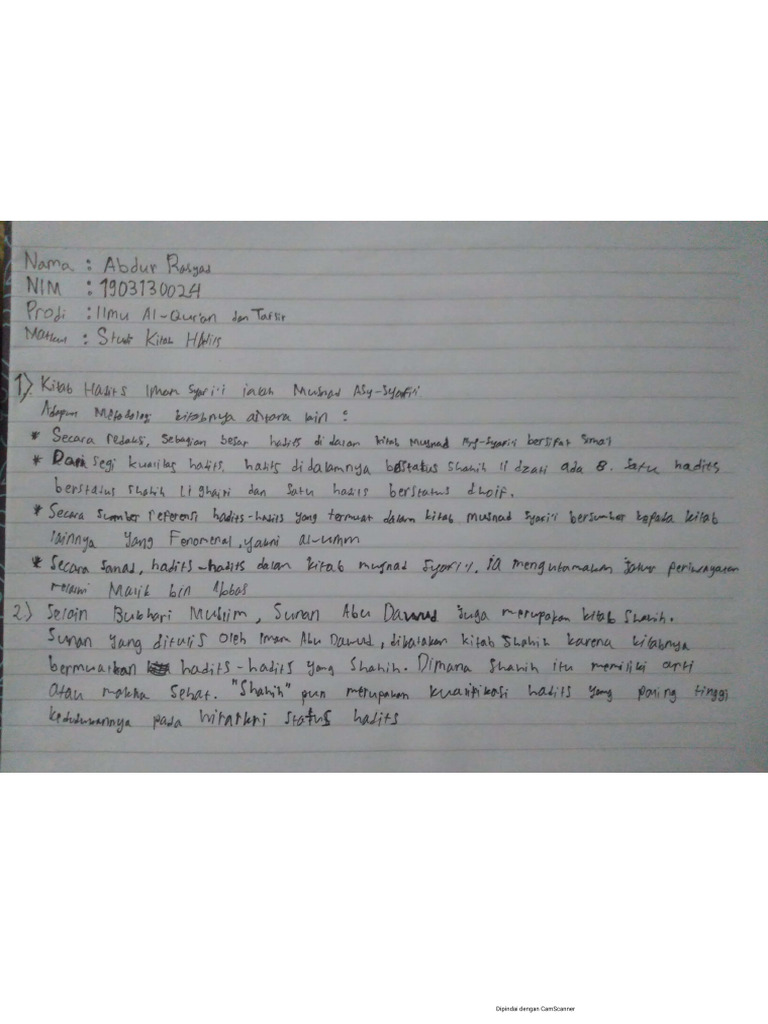 Nama : Abdur Rasyad
NIM : 1903130024
Prodi : Ilmu Al-Qur'an dan Tafsir
Matkul : Studi Kitab Hadits
1). Kitab Hadits Imam Syafi'i ialah Musnad Asy-Syafi'i
Adapun Metodologi kitabnya antara lain :
* Secara redaksi, sebagian besar hadits di dalam kitab Musnad Asy-Syafi'i bersifat
* Dari segi kualitas hadits, hadits didalamnya berstatus shahih li dzati ada 8. satu hadits
berstatus shahih li ghairi dan satu hadits berstatus dhoif.
* Secara sumber referensi hadits-hadits yang termuat dalam kitab musnad Syafi'i bersumber kepada kitab
lainnya yang Fenomenal, yakni al-umm
* Secara sanad, hadits-hadits dalam kitab musnad Syafi'i. ia mengutamakan jalur periwayatan
melalui Malik bin Abbas
2.) Selain Bukhari Muslim, Sunan Abu Dawud juga merupakan kitab Shahih.
Sunan yang ditulis oleh Imam Abu Dawud, dikatakan kitab Shahih karena kitabnya
bermuatkan hadits-hadits yang Shahih. Dimana Shahih itu memiliki arti
atau makna Sehat. "Shahih" pun merupakan kualifikasi hadits yang paling tinggi
kedudukannya pada hirarki status hadits
Dipindai dengan CamScanner